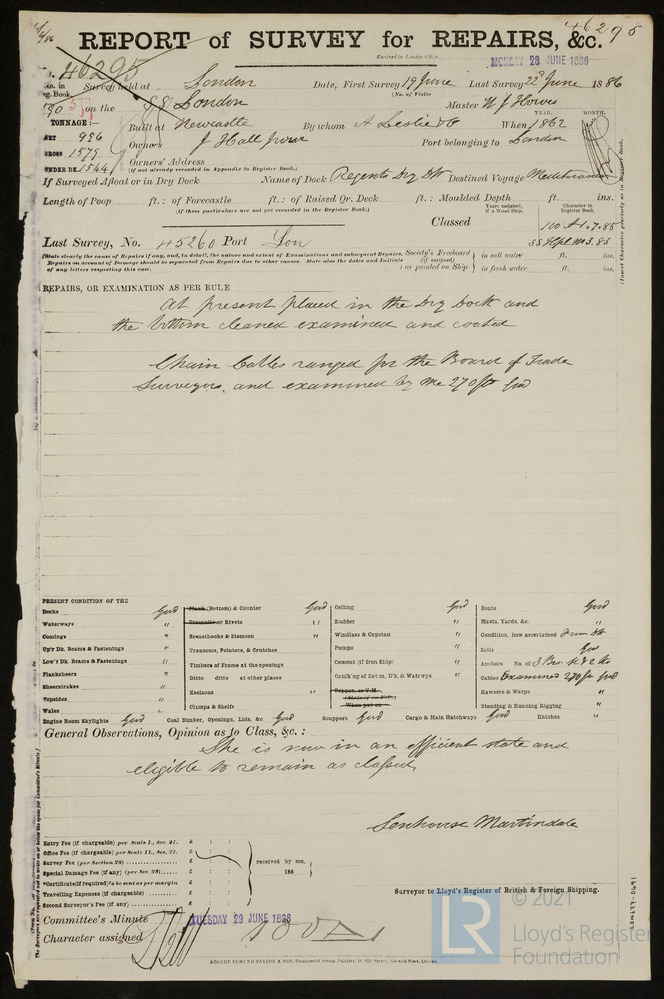 46295
REPORT of SURVEY for REPAIRS, &c.
Received in London Office,
MONDAY 28 JUNE 1886
46295
No. in Survey held at London Date, First Survey 19 June Last Survey 23rd June 1886
Reg. Book. (No. of Visits
on the SS London Master W J Howes
TONNAGE:— YEAR. MONTH.
NET 996 Built at Newcastle By whom A Leslie & Co When 1862
GROSS 1575 Owners J Hall junr Port belonging to London
UNDER DK. 1544 Owners' Address
(if not already recorded in Appendix to Register Book.)
If Surveyed Afloat or in Dry Dock Name of Dock Regents Dry Dk Destined Voyage Mediterranean
Length of Poop ft.: of Forecastle ft.: of Raised Qr. Deck ft.: Moulded Depth ft. ins.
(If these particulars are not yet recorded in the Register Book.)
Years assigned, if a Wood Ship. Character in Register Book.
Classed 100 A1. 7.85
Last Survey, No. 45260 Port Lon
(State clearly the cause of Repairs if any, and, in detail, the nature and extent of Examinations and subsequent Repairs.
Repairs on account of Damage should be separated from Repairs due to other causes. State also the dates and Initials
of any letters respecting this case.
Society's Freeboard (if assigned) as painted on Ship in salt water ft. ins.
in fresh water ft. ins.
(Insert Character precisely as in Register Book.
REPAIRS, OR EXAMINATION AS PER RULE
At present placed in the Dry Dock and
the bottom cleaned examined and coated
Chain Cables ranged for the Board of Trade
Surveyors, and examined by me 270 fm
PRESENT CONDITION OF THE
Decks Good
Waterways "
Comings "
Upr Dk. Beams & Fastenings "
Low'r Dk. Beams & Fastenings "
Planksheers "
Sheerstrakes "
Topsides "
Wales "
Plank (Bottom) & Counter Good
Treenails or Rivets "
Breasthooks & Stemson "
Transoms, Pointers, & Crutches
Timbers of Frame at the openings
Ditto ditto at other places
Keelsons "
Clamps & Shelfs
Ceiling Good
Rudder "
Windlass & Capstan "
Pumps "
Cement (if Iron Ship) "
Caulk'ng of Bot'm, D'k, & Watrwys "
Copper, or Y.M.
When put on
Boats Good
Masts, Yards, &c. "
Condition, how ascertained From Dk
Sails Good
Anchors No. of 3 Bo.
Cables Examined 270 fm Good
Hawsers & Warps "
Standing & Running Rigging "
Engine Room Skylights Good Coal Bunker, Openings, Lids, &c. Good Scuppers Good Cargo & Main Hatchways Good Hatches "
General Observations, Opinion as to Class, &c.:
She is now in an efficient state and
eligible to remain as classed,
Senhouse Martindale
Entry Fee (if chargeable) per Scale I., Sec. 27. £ : :
Office Fee (if chargeable) per Scale II., Sec. 27. £ : :
Survey Fee (per Section 28) £ : :
Special Damage Fee (if any) (per Sec. 28) £ : :
*Certificate (if required) to be sent as per margin
Travelling Expenses (if chargeable) £ : :
Second Surveyor's Fee (if any) £ : :
received by me,
188
Surveyor to Lloyd's Register of British & Foreign Shipping.
Committee's Minute TUESDAY 29 JUNE 1886
Character assigned 100 A1
ROBERT EDMUND TAYLOR & SON, Commercial Steam Printers, 19, Old Street, Goswell Road, London.
LON697-0691
LR
© 2021
Lloyd's Register
Foundation